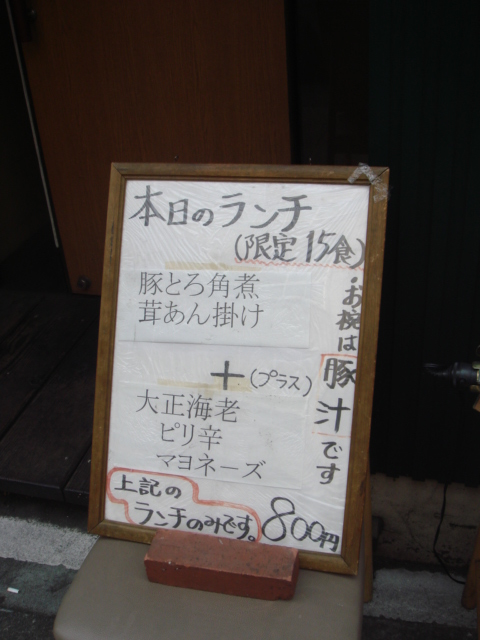 本日のランチ
(限定15食)
豚とろ角煮
茸あん掛け
+(プラス)
大正海老
ピリ辛
マヨネーズ
・お椀は豚汁です
上記の
ランチのみです。
800円